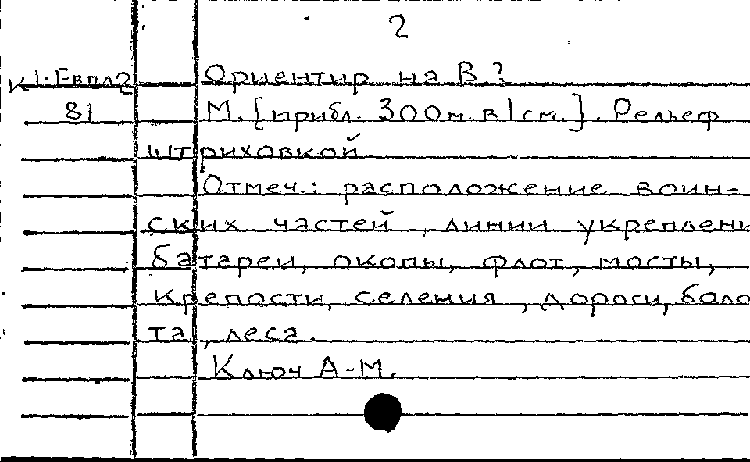 2
К 1·Евпл2 Ориентир на В?
81 М. [прибл. 300м. в 1 см.]. Рельеф
штриховкой
Отмеч.: расположение воин-
ских частей, линии укреплени
батареи, окопы, флот, мосты,
крепости, селения, дороги, боло
та, леса.
Ключ А-М.